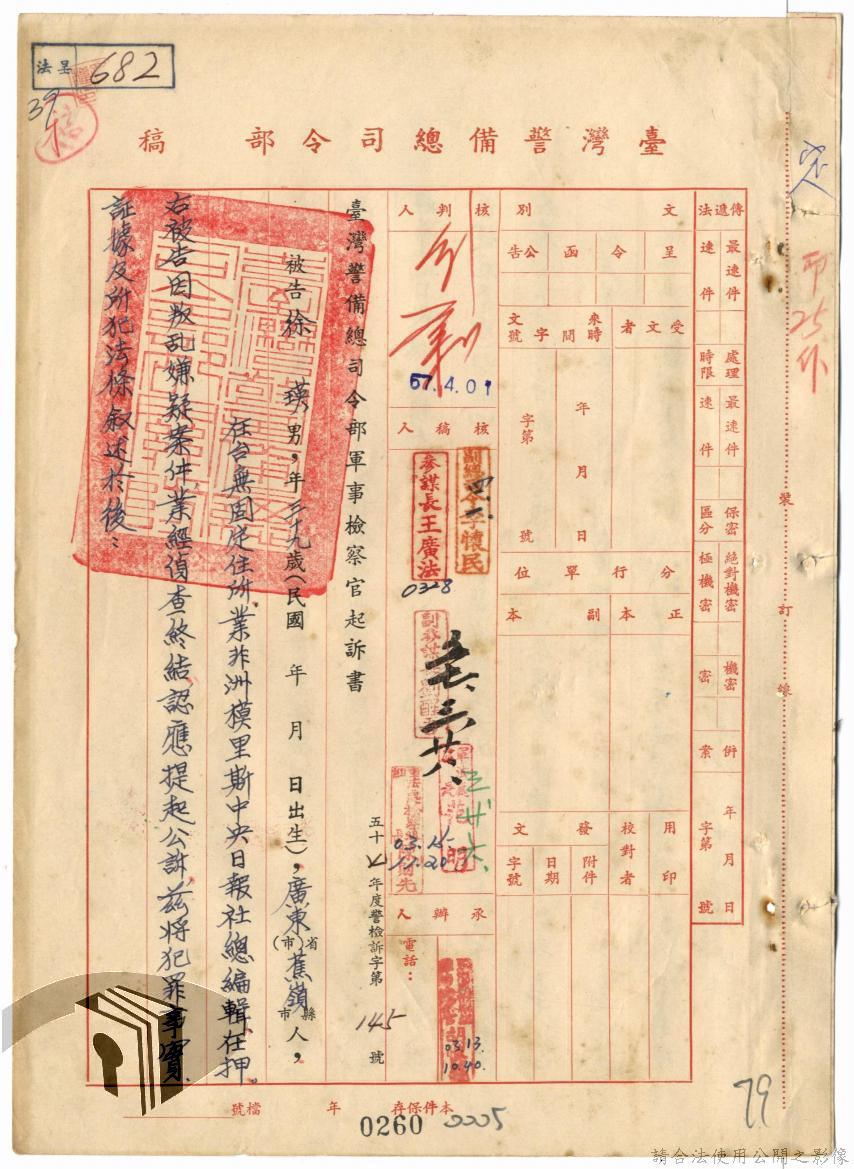 呈法 682
39
臺灣警備總司令部 稿
傳遞法 最速件 速件
處理時限 最速件 速件
保密區分 絕對機密 極機密 機密 密
併案 年 月 日 字第 號
文別 呈 令 函 公告
受文者 來文時間字號 年 月 日 字第 號
分行單位 正本 副本
用印 校對者 發文 附件 日期 字號
核判人
57.4.01
核稿人
副總司令李懷民
參謀長王廣法
0328
03.15
11.20
承辦人 電話：
03.13.
10.40.
臺灣警備總司令部軍事檢察官起訴書
五十七年度警檢訴字第 145 號
被告徐瑛男，年三十九歲（民國 年 月 日出生），廣東省（市）蕉嶺縣市人，
在台無固定住所，業非洲模里斯中央日報社總編輯，在押。
右被告因叛乱嫌疑案件業經偵查終結認應提起公訴茲將犯罪事實、
証據及所犯法條叙述於後：
裝訂線
本件保存 年 檔號
0260 0005
79
請合法使用公開之影像